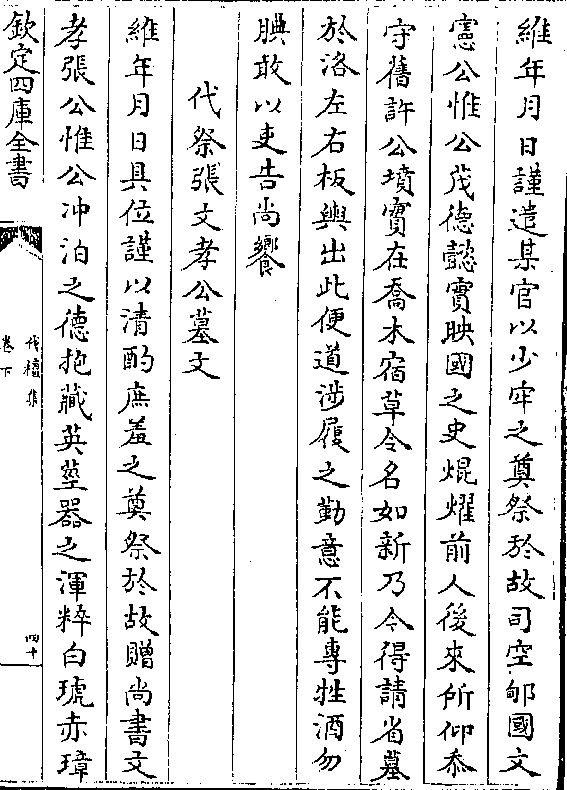 維年月日謹遣某官以少牢之奠祭於故司空郇國文
憲公惟公茂德懿實映國之史焜燿前人後來所仰忝
守舊許公墳實在喬木宿草令名如新乃今得請省墓
於洛左右板輿出此便道涉履之勤意不能專牲酒勿
腆敢以吏告尚饗
代祭張文孝公墓文
維年月日具位謹以清酌庶羞之奠祭於故贈尚書文
孝張公惟公冲泊之德抱藏英莖器之渾粹白琥赤璋
欽定四庫全書
伐檀集
卷下
四十